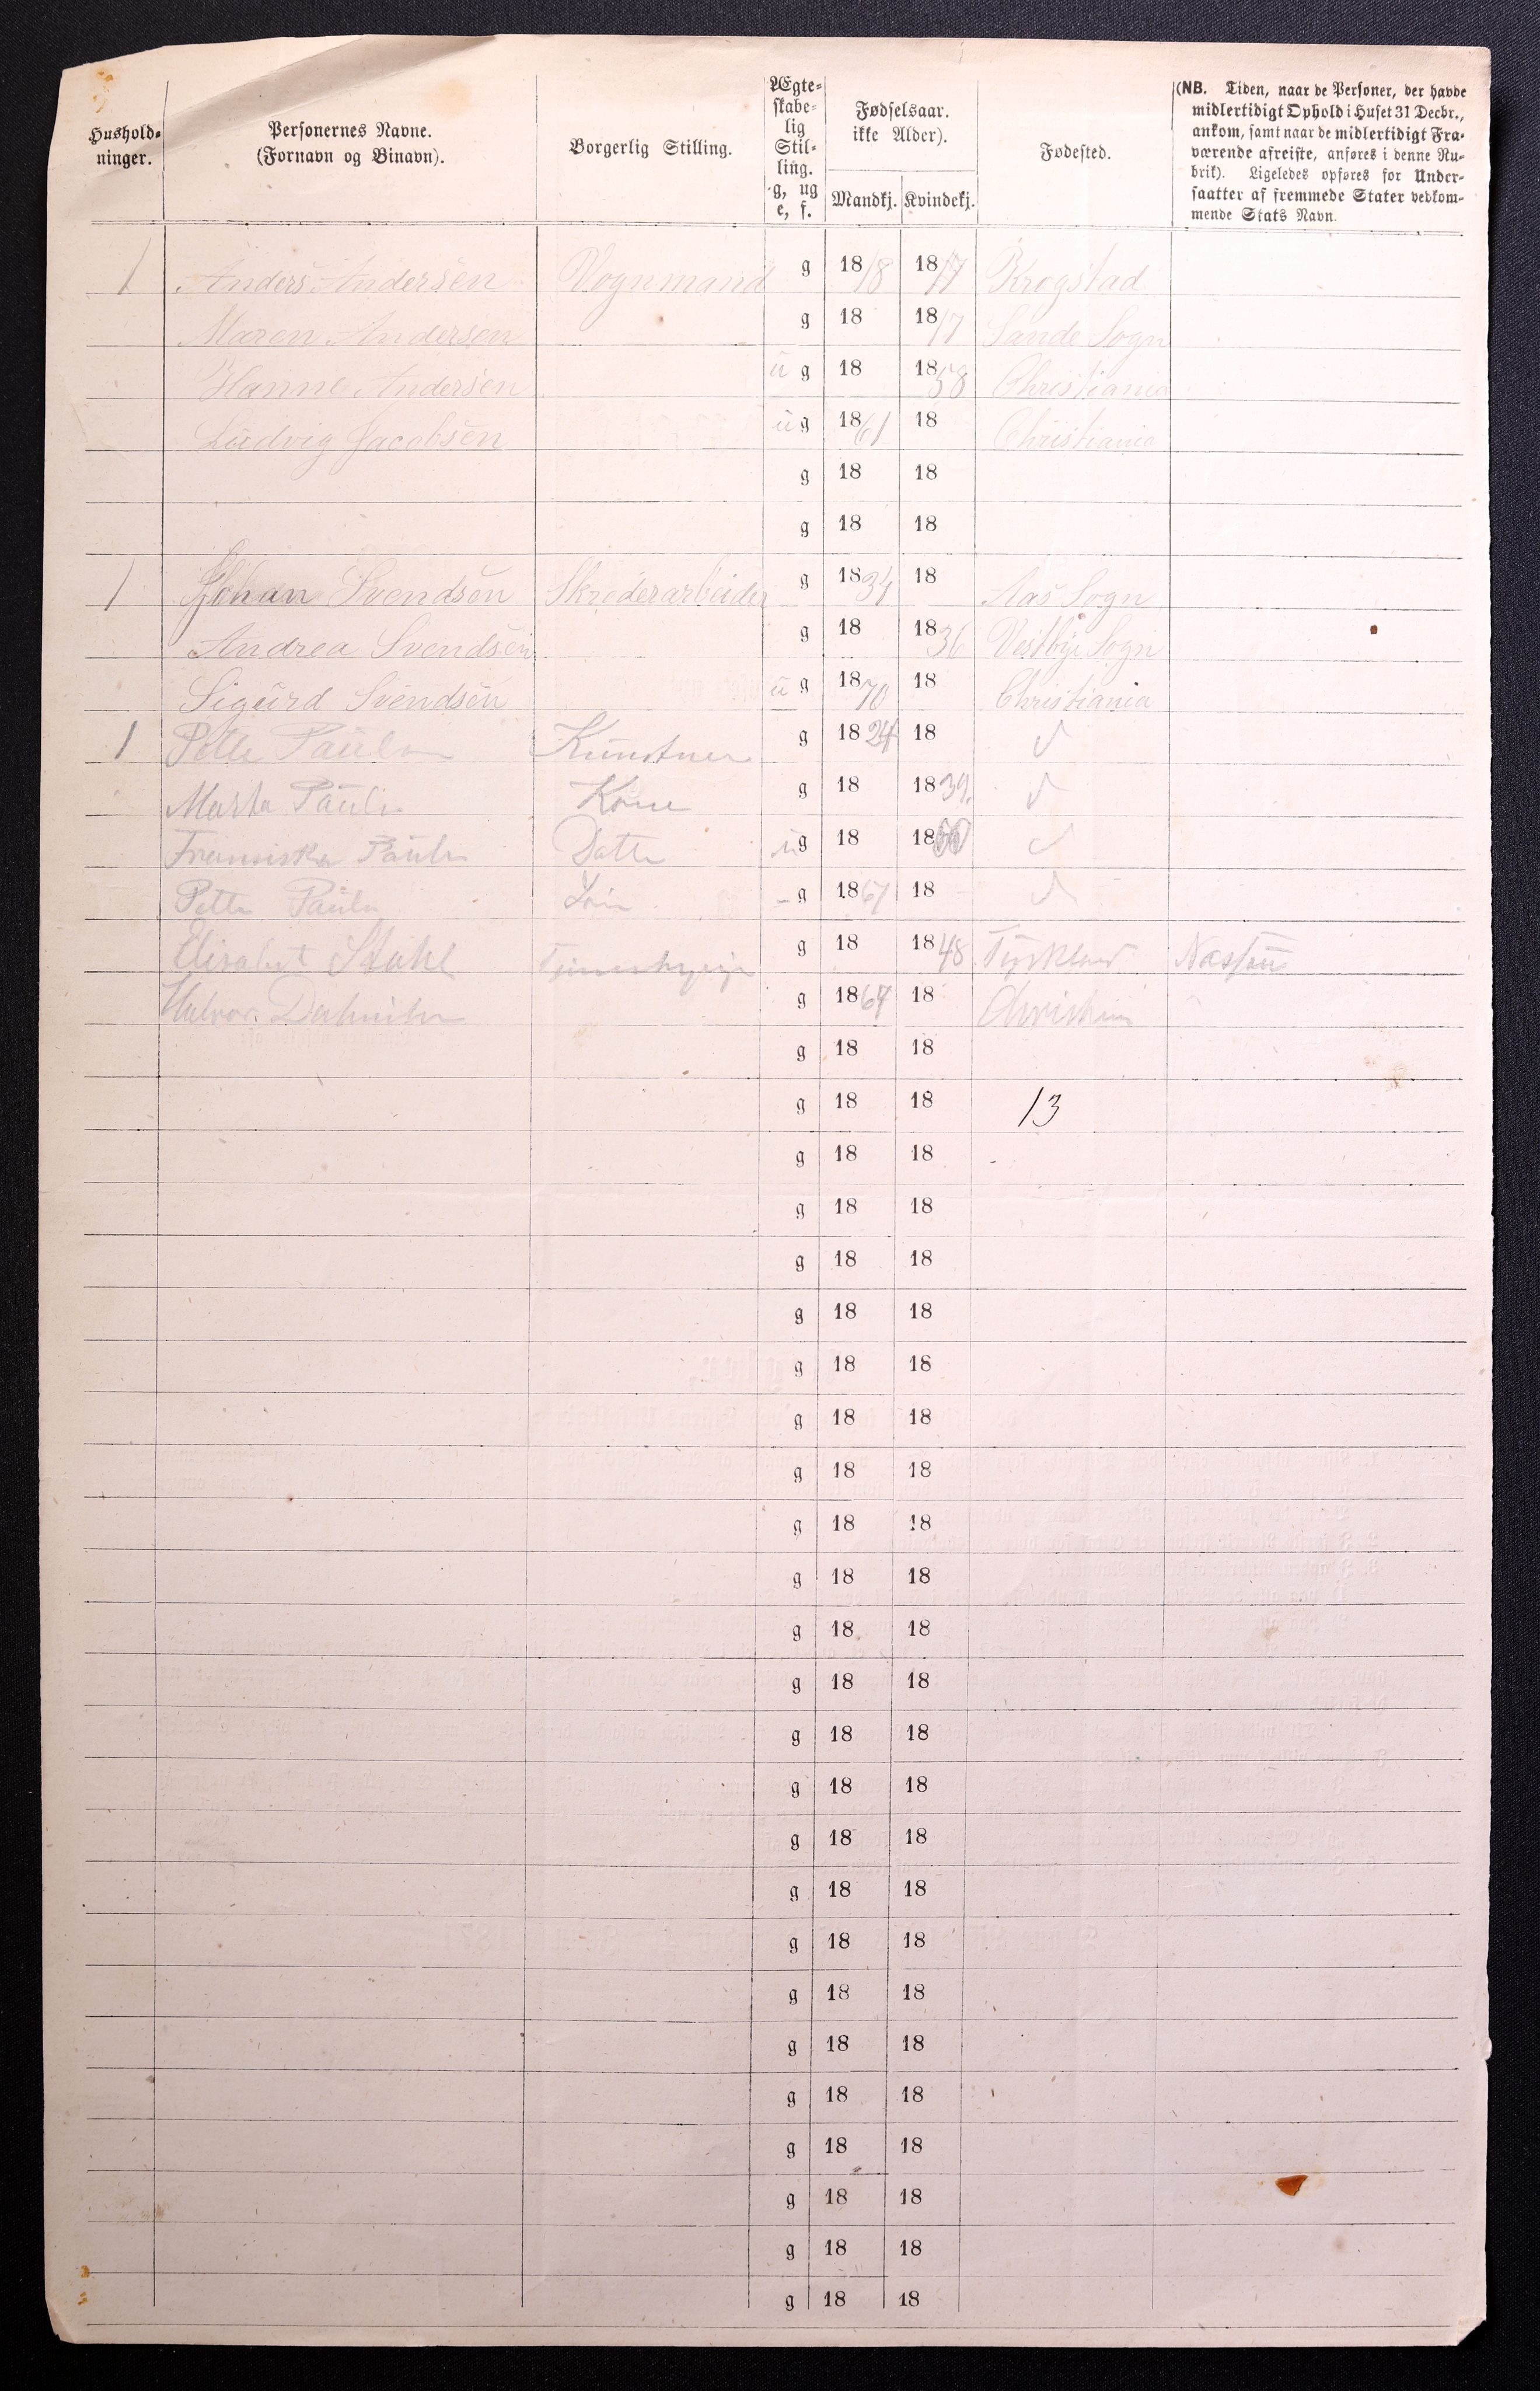 Hushold-
ninger.
Personernes Navne.
(Fornavn og Binavn).
Borgerlig Stilling.
Ægte-
skabe-
lig
Stil-
ling.
g, ug
e, f.
Fødselsaar.
ikke Alder).
Mandkj. Kvindekj.
Fødested.
(NB. Tiden, naar de Personer, der havde
midlertidigt Ophold i Huset 31 Decbr.,
ankom, samt naar de midlertidigt Fra-
værende afreiste, anføres i denne Ru-
brik). Ligeledes opføres for Under-
saatter af fremmede Stater vedkom-
mende Stats Navn.
1 Anders Andersen Vognmand g 1818 1817 Krogstad
Maren Andersen g 18 1817 Sande Sogn
Hanne Andersen u g 18 1858 Christiania
Ludvig Jacobsen u g 1861 18 Christiania
g 18 18
g 18 18
1 Johan Svendsen Skrœderarbeider g 1834 18 Aas Sogn
Andrea Svendsen g 18 1836 Vestby Sogn
Sigurd Svendsen u g 1870 18 Christiania
1 Kunstner g 1824 18
Kone g 18 1839
u g 18 18
g 1867 18
Elisabet Stahl g 18 1848 Tyskland Nassau
g 1867 18
g 18 18
g 18 18 13
g 18 18
g 18 18
g 18 18
g 18 18
g 18 18
g 18 18
g 18 18
g 18 18
g 18 18
g 18 18
g 18 18
g 18 18
g 18 18
g 18 18
g 18 18
g 18 18
g 18 18
g 18 18
g 18 18
g 18 18
g 18 18
g 18 18
g 18 18